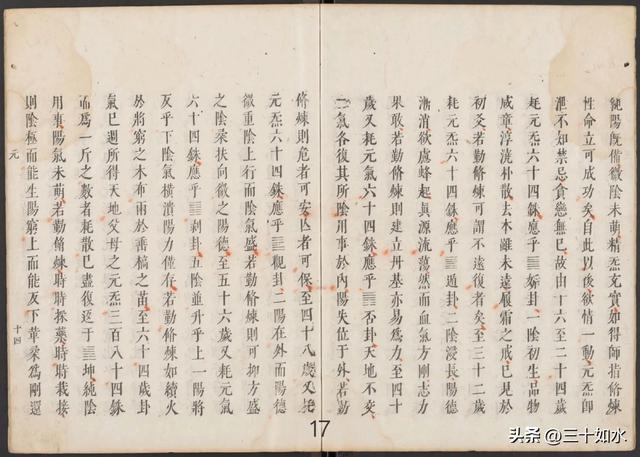 純陽旣備微陰未萌精炁充實如得師指脩煉
性命立可成功矣自此以後欲情一動元炁卽
泄不知禁忌貪戀無已故由十六至二十四歲
耗元炁六十四銖應乎䷫姤卦一陰初生品物
咸章淳澆朴散去本雖未遠履霜之戒已見於
初爻若勤脩煉可謂不遠復者矣至三十二歲
耗元炁六十四銖應乎䷠遁卦二陰浸長陽德
漸消欲慮蜂起眞源流蕩然而血氣方剛志力
果敢若勤脩煉則建立丹基亦易爲力至四十
歲又耗元氣六十四銖應乎䷋否卦天地不交
二氣各復其所陰用事於內陽失位于外若勤
脩煉則危者可安亾者可保至四十八歲又耗
元炁六十四銖應乎䷓觀卦二陽在外而陽德
微重陰上行而陰氣盛若勤脩煉則可抑方盛
之陰柔扶向微之陽德至五十六歲又耗元氣
六十四銖應乎䷖剥卦五陰並升乎上一陽將
反乎下陰氣橫潰陽力僅存若勤脩煉如續火
於將窮之木布雨於善槁之苗至六十四歲卦
氣已週所得天地父母之元炁三百八十四銖
而爲一斤之數者耗散已盡復返于䷁坤純陰
用事陽氣未萌若勤脩煉時時採藥時時栽接
則陰極而能生陽窮上而能反下革柔爲剛還
元 十四
17
头条 @三十如水